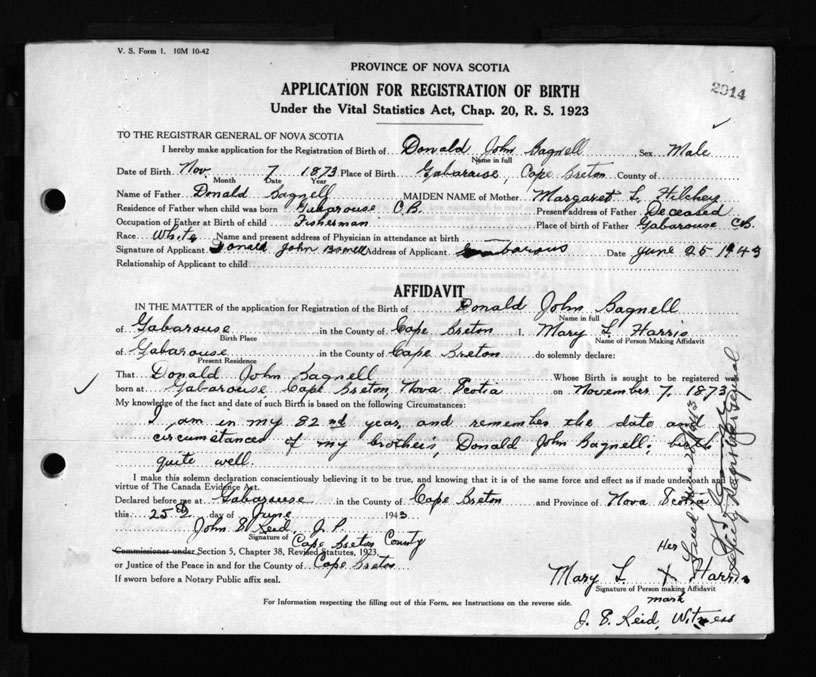 V. S. Form 1. 10M 10-42
PROVINCE OF NOVA SCOTIA
2914
APPLICATION FOR REGISTRATION OF BIRTH
Under the Vital Statistics Act, Chap. 20, R. S. 1923
TO THE REGISTRAR GENERAL OF NOVA SCOTIA
I hereby make application for the Registration of Birth of Donald John Bagnell Sex Male
Name in full
Date of Birth Nov. 7 1873 Place of Birth Gabarouse, Cape Breton County of
Month Date Year
Name of Father Donald Bagnell MAIDEN NAME of Mother Margaret L. Hilchey
Residence of Father when child was born Gabarouse C.B. Present address of Father Deceased
Occupation of Father at Birth of Child Fisherman Place of birth of Father Gabarouse C.B.
Race White Name and present address of Physician in attendance at birth
Signature of Applicant Donald John Address of Applicant Gabarous Date June 25 1943
Relationship of Applicant to child
AFFIDAVIT
IN THE MATTER of the application for Registration of the Birth of Donald John Bagnell
Name in full
of Gabarouse in the County of Cape Breton I, Mary L. Harris
Birth Place Name of Person Making Affidavit
of Gabarouse in the County of Cape Breton do solemnly declare:
Present Residence
That Donald John Bagnell Whose Birth is sought to be registered was
born at Gabarouse Cape Breton, Nova Scotia on November 7, 1873
My knowledge of the fact and date of such Birth is based on the following Circumstances:
I am in my 82nd year, and remember the date and
circumstances of my brother's, Donald John Bagnell; birth
quite well.
I make this solemn declaration conscientiously believing it to be true, and knowing that it is of the same force and effect as if made under oath and by
virtue of The Canada Evidence Act.
Declared before me at Gabarouse in the County of Cape Breton and Province of Nova Scotia
this 25th day of June 1943
John E Reid, J.P.
Signature of Cape Breton County
Commissioner under Section 5, Chapter 38, Revised Statutes, 1923
or Justice of the Peace in and for the County of Cape Breton
If sworn before a Notary Public affix seal.
Her
Mary L X Harris
Signature of Person making Affidavit
mark
For Information respecting the filling out of this Form, see Instructions on the reverse side.
J. E. Reid, Witness
Deputy Registrar General